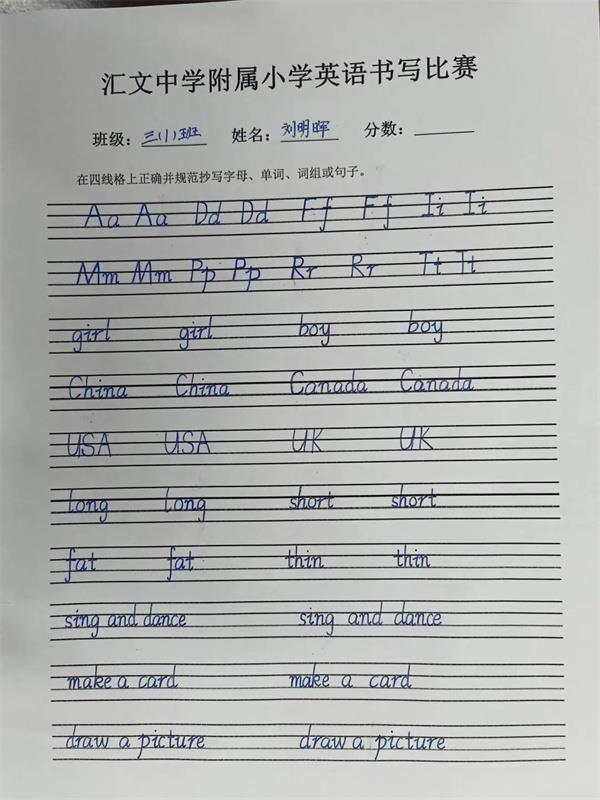 汇文中学附属小学英语书写比赛
班级：三(1)班 姓名：刘明晖 分数：
在四线格上正确并规范抄写字母、单词、词组或句子。
Aa Aa Dd Dd Ff Ff Ii Ii
Mm Mm Pp Pp Rr Rr Tt Tt
girl girl boy boy
China China Canada Canada
USA USA UK UK
long long short short
fat fat thin thin
sing and dance sing and dance
make a card make a card
draw a picture draw a picture